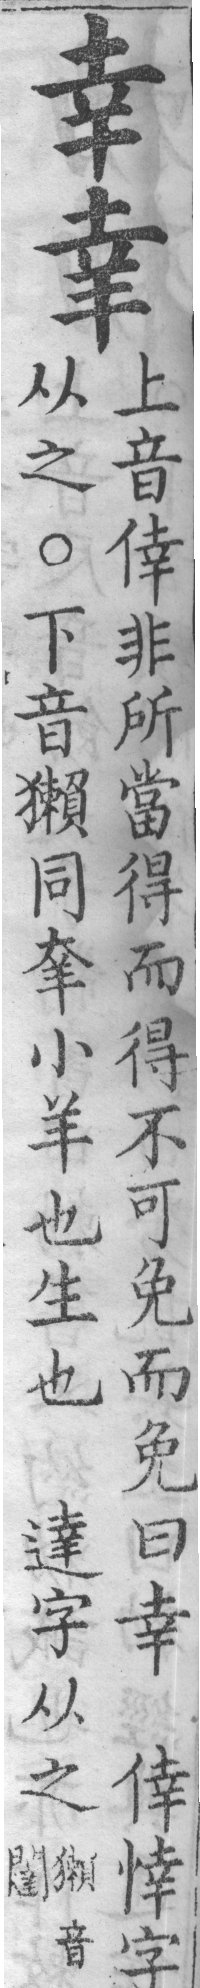 幸𦍒
上音倖非所當得而得不可免而免曰幸 倖悻字
从之○下音獺同羍小羊也生也 達字从之獺音
闥